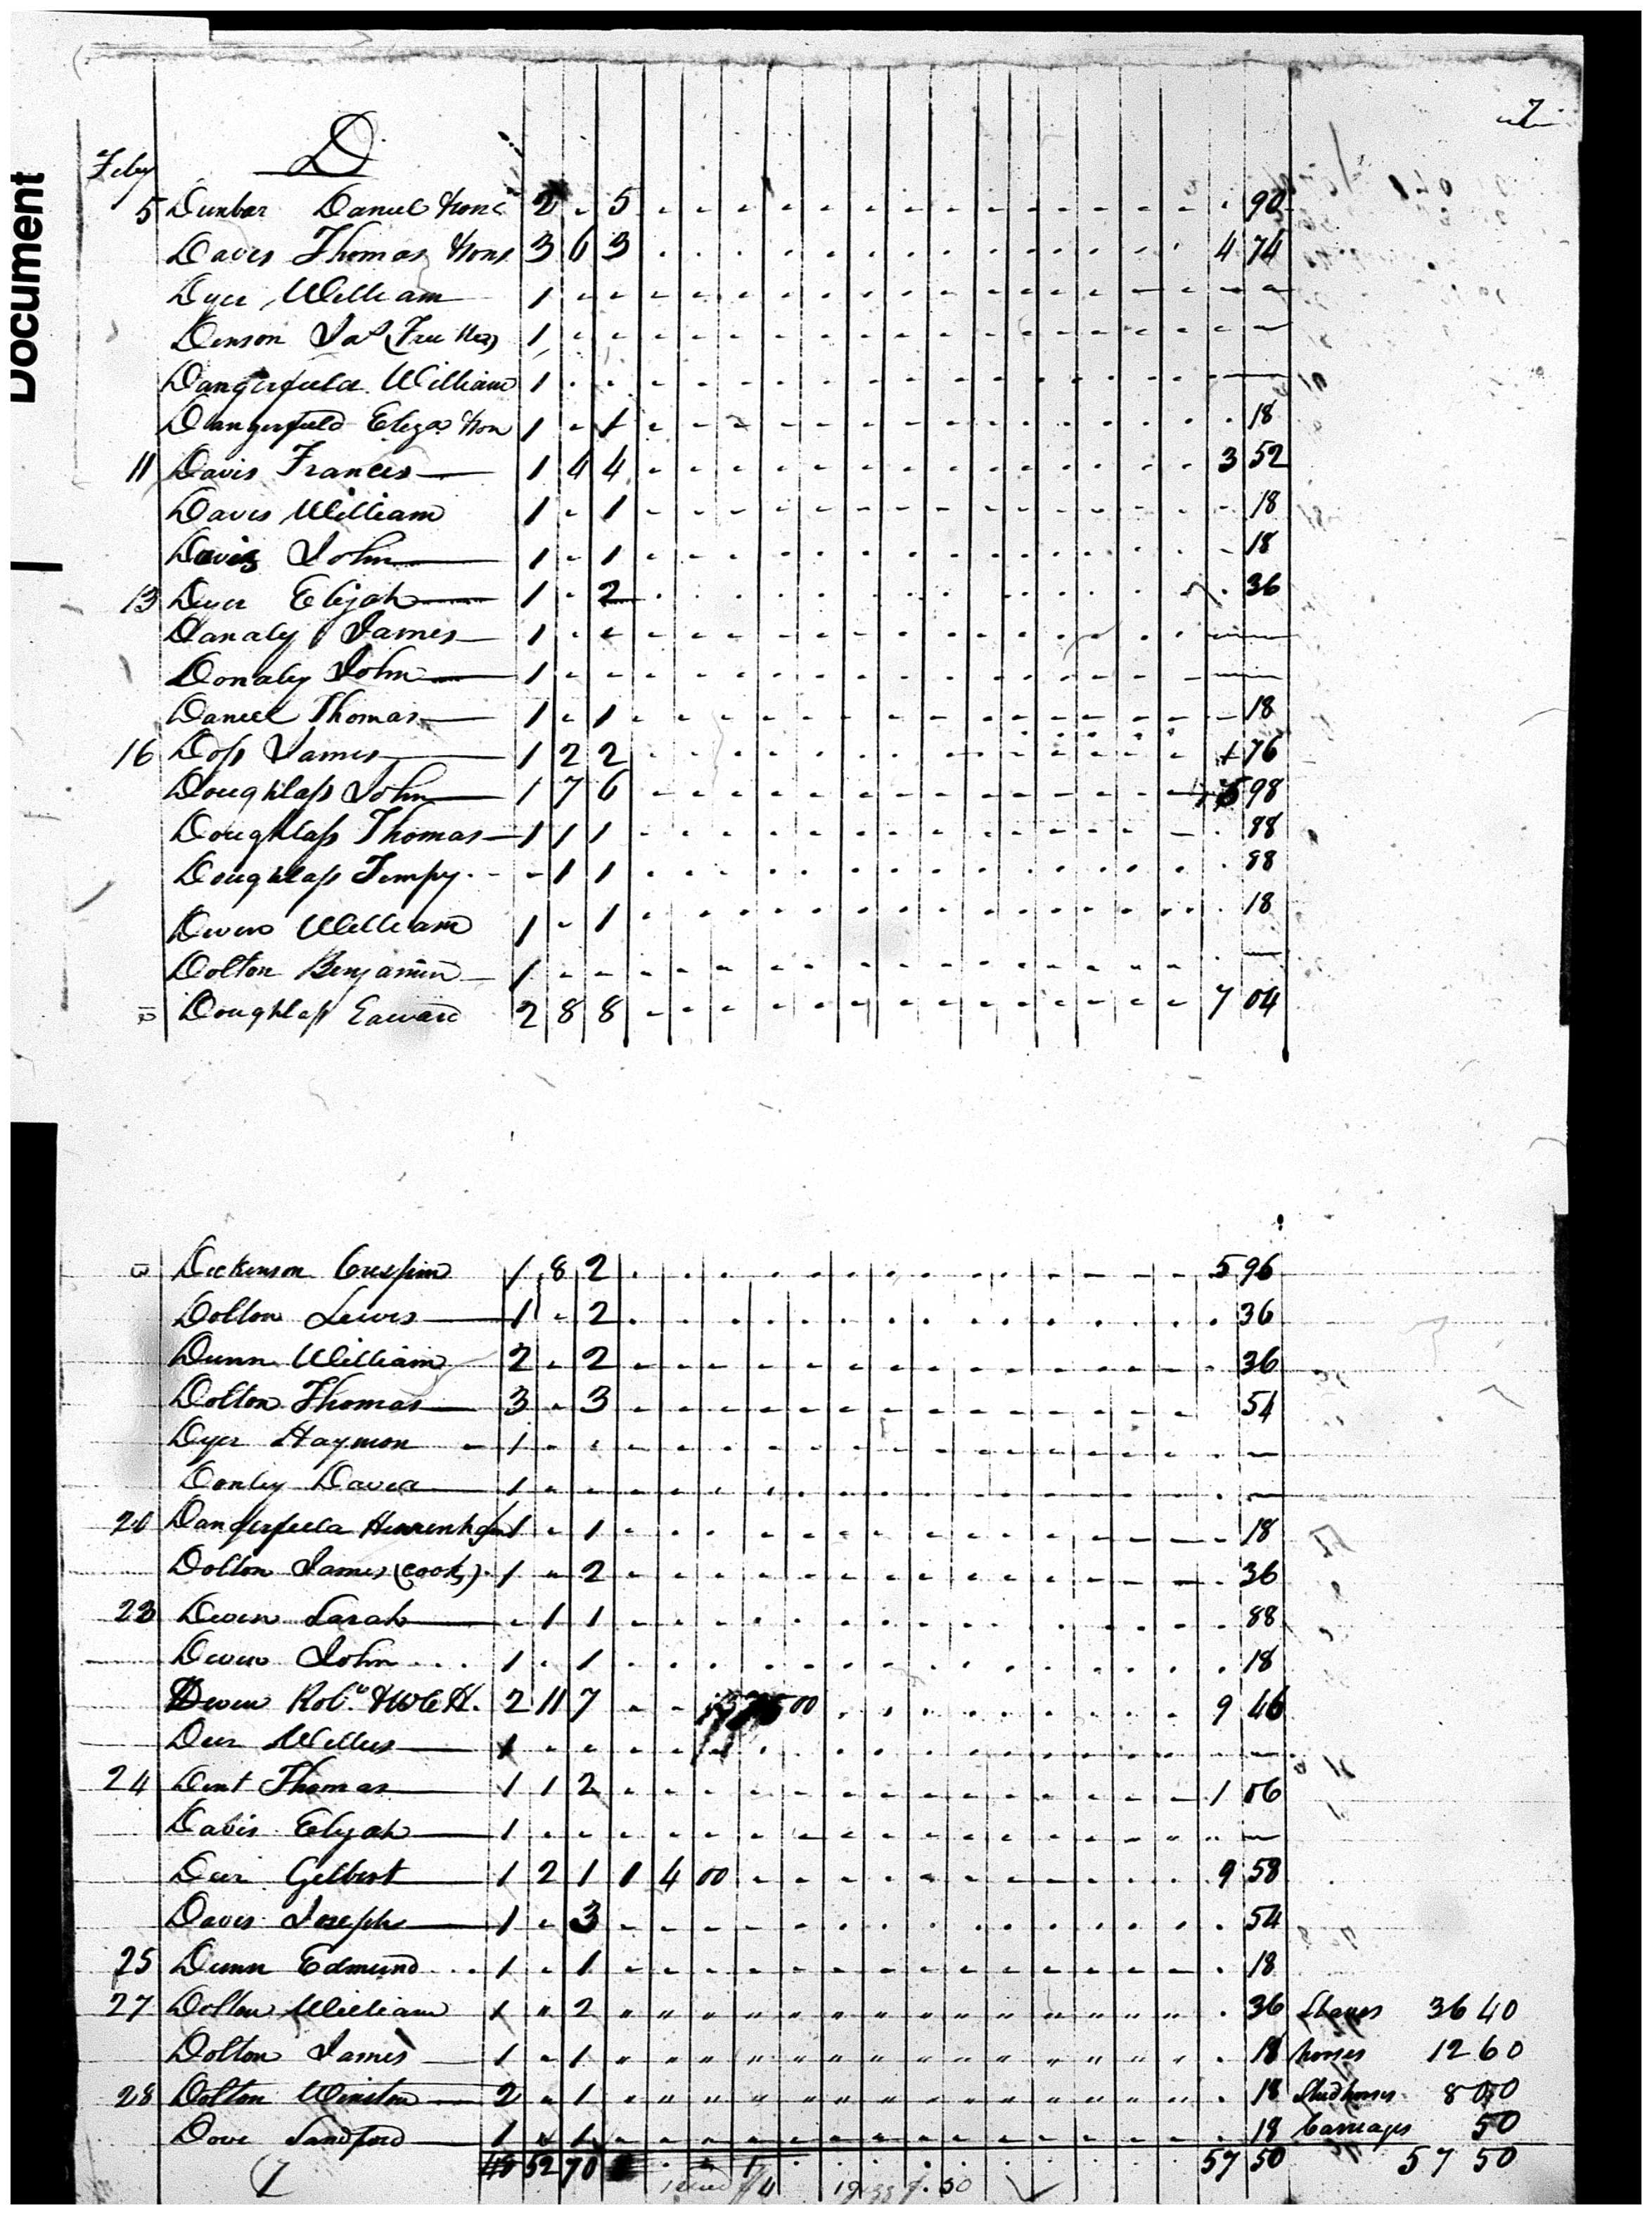 7
D
Feby
5 Dunbar Daniel & son 2 - 5 - - - - - - - - - - - - - - . 90
Davis Thomas & sons 3 6 3 . . . . . . . . . . . . . . 4 74
Dyer William 1 - - - - - - - - - - - - - - - - - -
Denson Jas (Free Neg) 1 - - - - - - - - - - - - - - - - - -
Dangerfield William 1 . . - - - - - - - - - - - - - - —
Dangerfield Eliza & son 1 - 1 - - - - - - - - - - - - - . 18
11 Davis Francis 1 4 4 - - - - - - - - - - - - - - 3 52
Davis William 1 - 1 - - - - - - - - - - - - - - 18
Davis John 1 - 1 - - - - - - - - - - - - - - 18
13 Dyer Elijah 1 - 2 . . . . . . . . . . . . . . 36
Danaly James 1 - - - - - - - - - - - - - - - —
Donaly John 1 - - - - - - - - - - - - - - - —
Daniel Thomas 1 - 1 - - - - - - - - - - - - - - 18
16 Doss James 1 2 2 . . . . . . . . . . . . . . 1 76
Doughlass John 1 7 6 - - - - - - - - - - - - - - 5 98
Doughlass Thomas 1 1 1 - - - - - - - - - - - - - - . 88
Doughlass Tempy - 1 1 . . . . . . . . . . . . . . . 88
Devin William 1 - 1 - - - - - - - - - - - - - - . 18
Dolton Benjamin 1 - - - - - - - - - - - - - - - . —
Doughlass Edward 2 8 8 - - - - - - - - - - - - - - 7 04
Dickenson Crispin 1 8 2 . . . . . . . . . . - - - - 5 96
Dolton Lewis 1 - 2 . . . . . . . . . . . . . . . 36
Dunn William 2 - 2 - - - - - - - - - - - - - - . 36
Dolton Thomas 3 - 3 - - - - - - - - - - - - - - 54
Dyer Haymon 1 - - - - - - - - - - - - - - - . —
Donley David 1 - - - - - - - - - - - - - - - . —
20 Dangerfield 1 - 1 - - - - - - - - - - - - - - . 18
Dolton James (cook) 1 - 2 - - - - - - - - - - - - - - . 36
23 Devin Sarah - 1 1 - - - - - - - - - - - - - - . 88
Devin John 1 - 1 . . . . . . . . . . . . . . . 18
Devin Robt & 2 11 7 - - 00 . . . . . . . . . . 9 46
Deer Willis 1 - - - - - - - - - - - - - - - - —
24 Dent Thomas 1 1 2 - - - - - - - - - - - - - - 1 06
Davis Elijah 1 - - - - - - - - - - - - - - - - —
Deer Gilbert 1 2 1 1 4 00 - - - - - - - - - - - 9 58
Davis Joseph 1 - 3 - - - - - - - - - - - - - - . 54
25 Dunn Edmund 1 - 1 - - - - - - - - - - - - - - . 18
27 Dolton William 1 " 2 " " " " " " " " " " " " " " . 36 Slaves 36 40
Dolton James 1 - 1 " " " " " " " " " " " " " " . 18 horses 12 60
28 Dolton Winston 2 - 1 " " " " " " " " " " " " " " . 18 Studhorses 8 00
Dove Sandford 1 " 1 - - - - - - - - - - - - - - . 18 Carriages 50
48 52 70 57 50 57 50
1 stud $4 1 gigg $. 50
Document